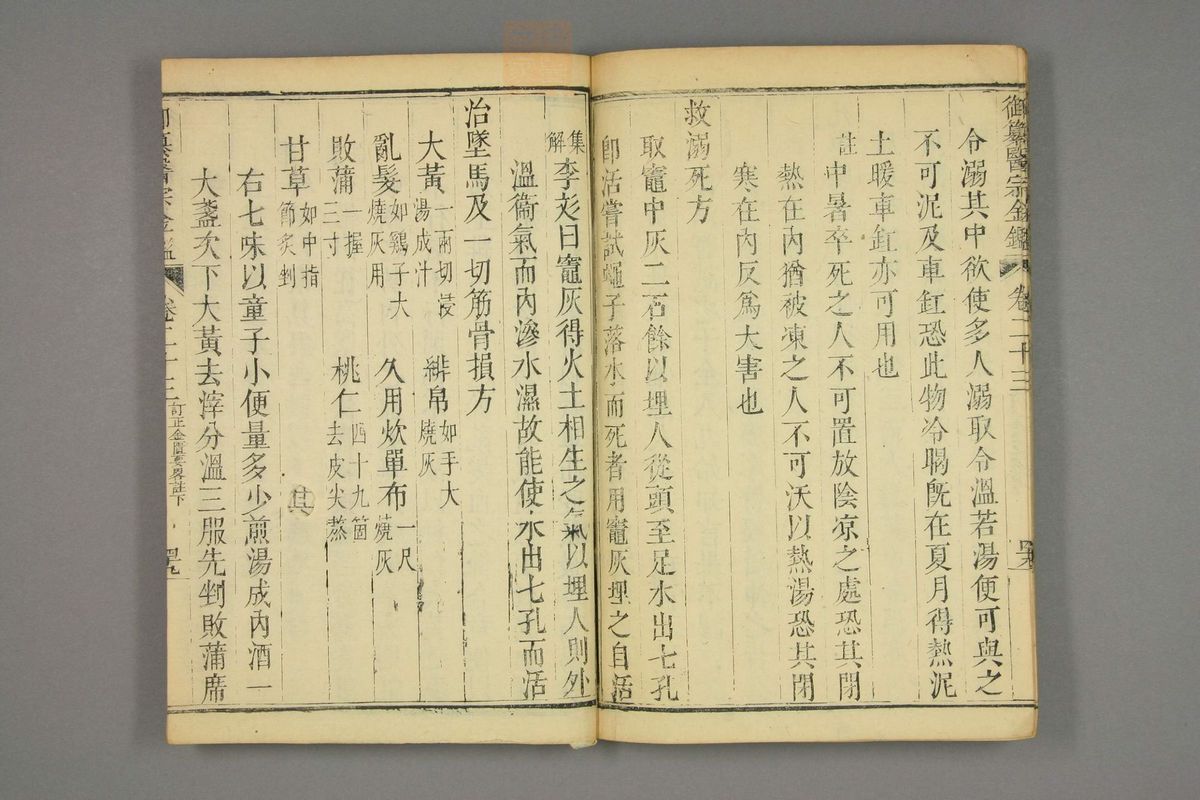 御纂醫宗金鑑 卷二十三
令溺其中欲使多人溺取令溫若湯便可與之
不可泥及車釭恐此物冷暍旣在夏月得熱泥
土暖車釭亦可用也
註中暑卒死之人不可置放陰凉之處恐其閉
熱在內猶被凍之人不可沃以熱湯恐其閉
寒在內反爲大害也
救溺死方
取竈中灰二石餘以埋人從頭至足水出七孔
卽活嘗試蠅子落水而死者用竈灰埋之自活
集解李彣曰竈灰得火土相生之氣以埋人則外
溫衞氣而內滲水濕故能使水出七孔而活
治墜馬及一切筋骨損方
大黃一兩切浸湯成汁 緋帛如手大燒灰
亂髮如鷄子大燒灰用 久用炊單布一尺燒灰
敗蒲一握三寸 桃仁四十九箇去皮尖熬
甘草如中指節炙剉
右七味以童子小便量多少煎湯成內酒一
大盞次下大黃去滓分溫三服先剉敗蒲席
卷二十三 訂正金匱要畧註下